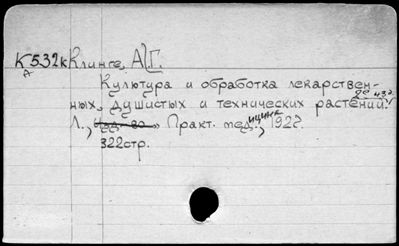 К532к Клинге, А.Г.
А
Культура и обработка лекарствен-
ных, душистых и технических растений.
2е изд.
Л., "Практ. медицина", 1927.
322стр.